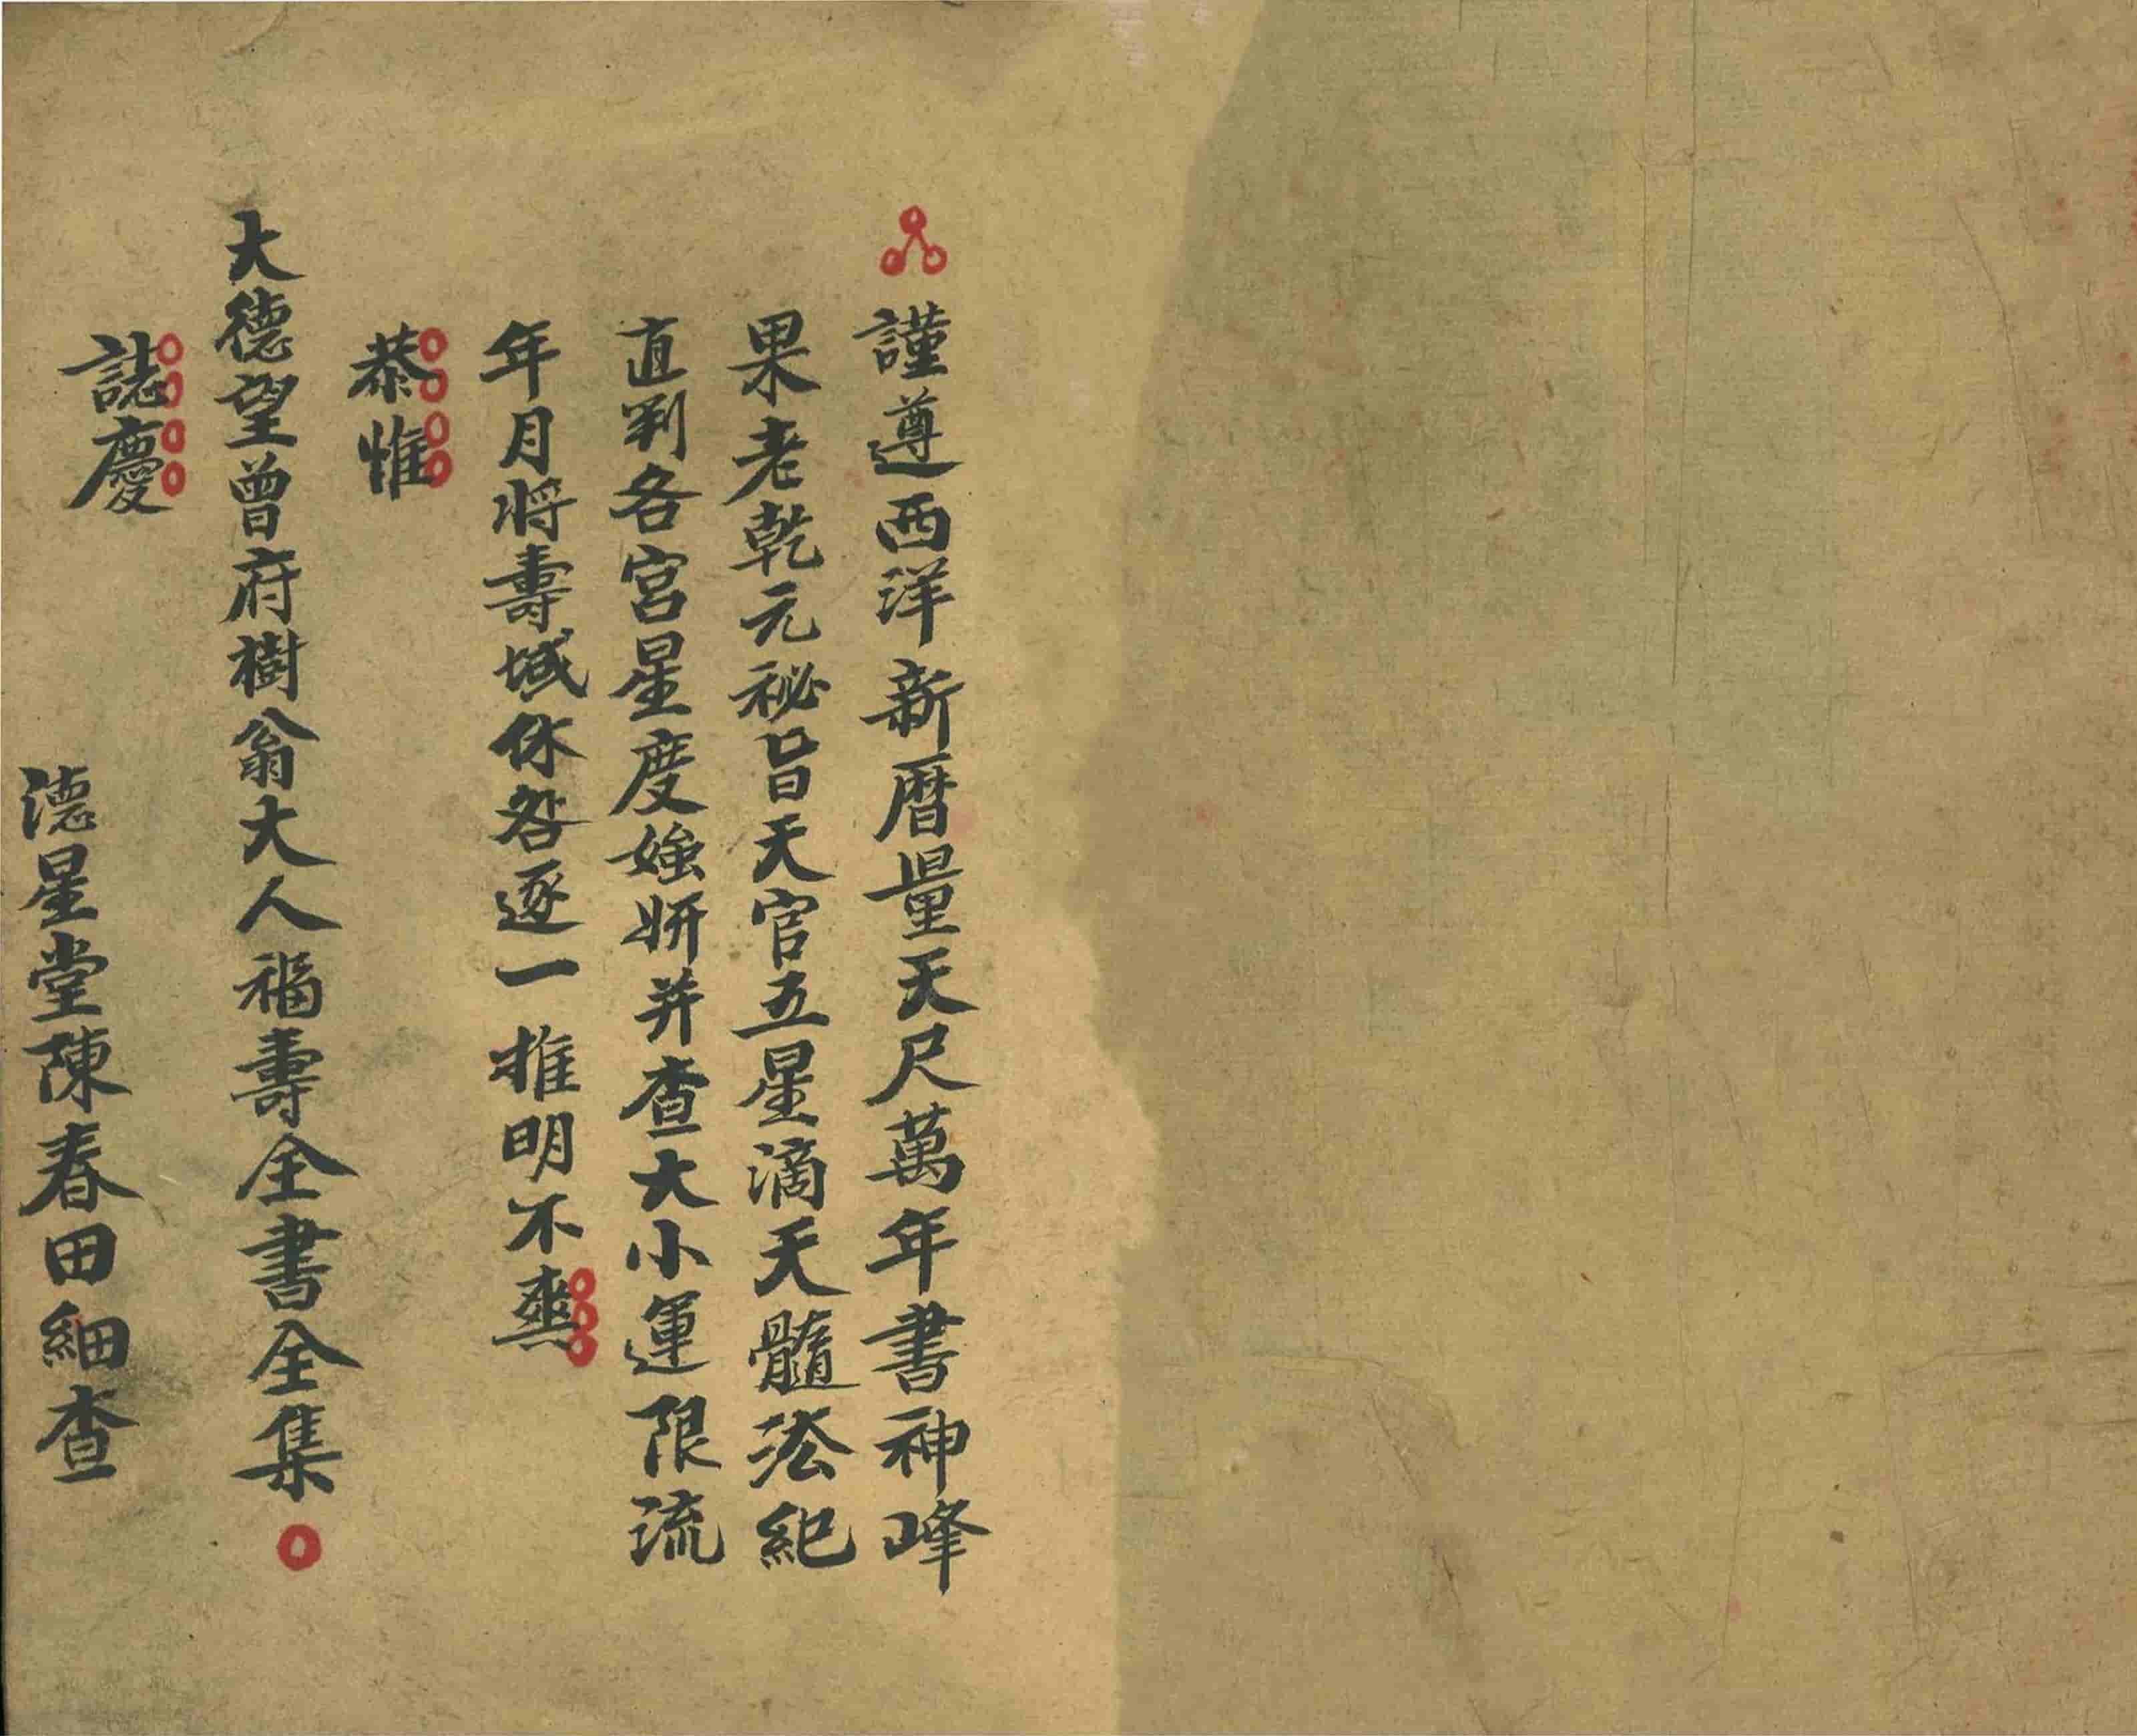 謹遵西洋新曆量天尺萬年書神峰
果老乾元祕旨天官五星滴天髓法紀
直判各宮星度媸妍并查大小運限流
年月將壽域休咎逐一推明不爽
恭惟
大德望曾府樹翁大人福壽全書全集
誌慶
德星堂陳春田細查